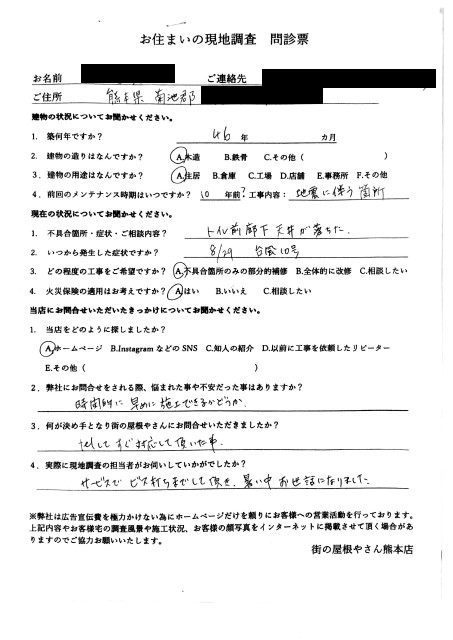 お住まいの現地調査 問診票
お名前 ご連絡先
ご住所 熊本県 菊池郡
建物の状況についてお聞かせください。
1. 築何年ですか? 46 年 カ月
2. 建物の造りはなんですか? A.木造 B.鉄骨 C.その他( )
3. 建物の用途はなんですか? A.住居 B.倉庫 C.工場 D.店舗 E.事務所 F.その他
4. 前回のメンテナンス時期はいつですか? 10 年前? 工事内容: 地震に伴う箇所
現在の状況についてお聞かせください。
1. 不具合箇所・症状・ご相談内容? トイレ前廊下 天井が落ちた.
2. いつから発生した症状ですか? 8/29 台風10号
3. どの程度の工事をご希望ですか? A.不具合箇所のみの部分的補修 B.全体的に改修 C.相談したい
4. 火災保険の適用はお考えですか? A.はい B.いいえ C.相談したい
当店にお問合せいただいたきっかけについてお聞かせください。
1. 当店をどのように探しましたか?
A.ホームページ B.Instagram などの SNS C.知人の紹介 D.以前に工事を依頼したリピーター
E.その他( )
2. 弊社にお問合せをされる際、悩まれた事や不安だった事はありますか?
時間的に 早めに施工できるかどうか.
3. 何が決め手となり街の屋根やさんにお問合せいただきましたか?
telしてすぐ対応して頂いた事.
4. 実際に現地調査の担当者がお伺いしていかがでしたか?
サービスで ビス打ちまでして頂き、暑い中 お世話になりました
※弊社は広告宣伝費を極力かけない為にホームページだけを頼りにお客様への営業活動を行っております。
上記内容やお客様宅の調査風景や施工状況、お客様の顔写真をインターネットに掲載させて頂く場合があ
りますのでご協力お願いいたします。
街の屋根やさん熊本店